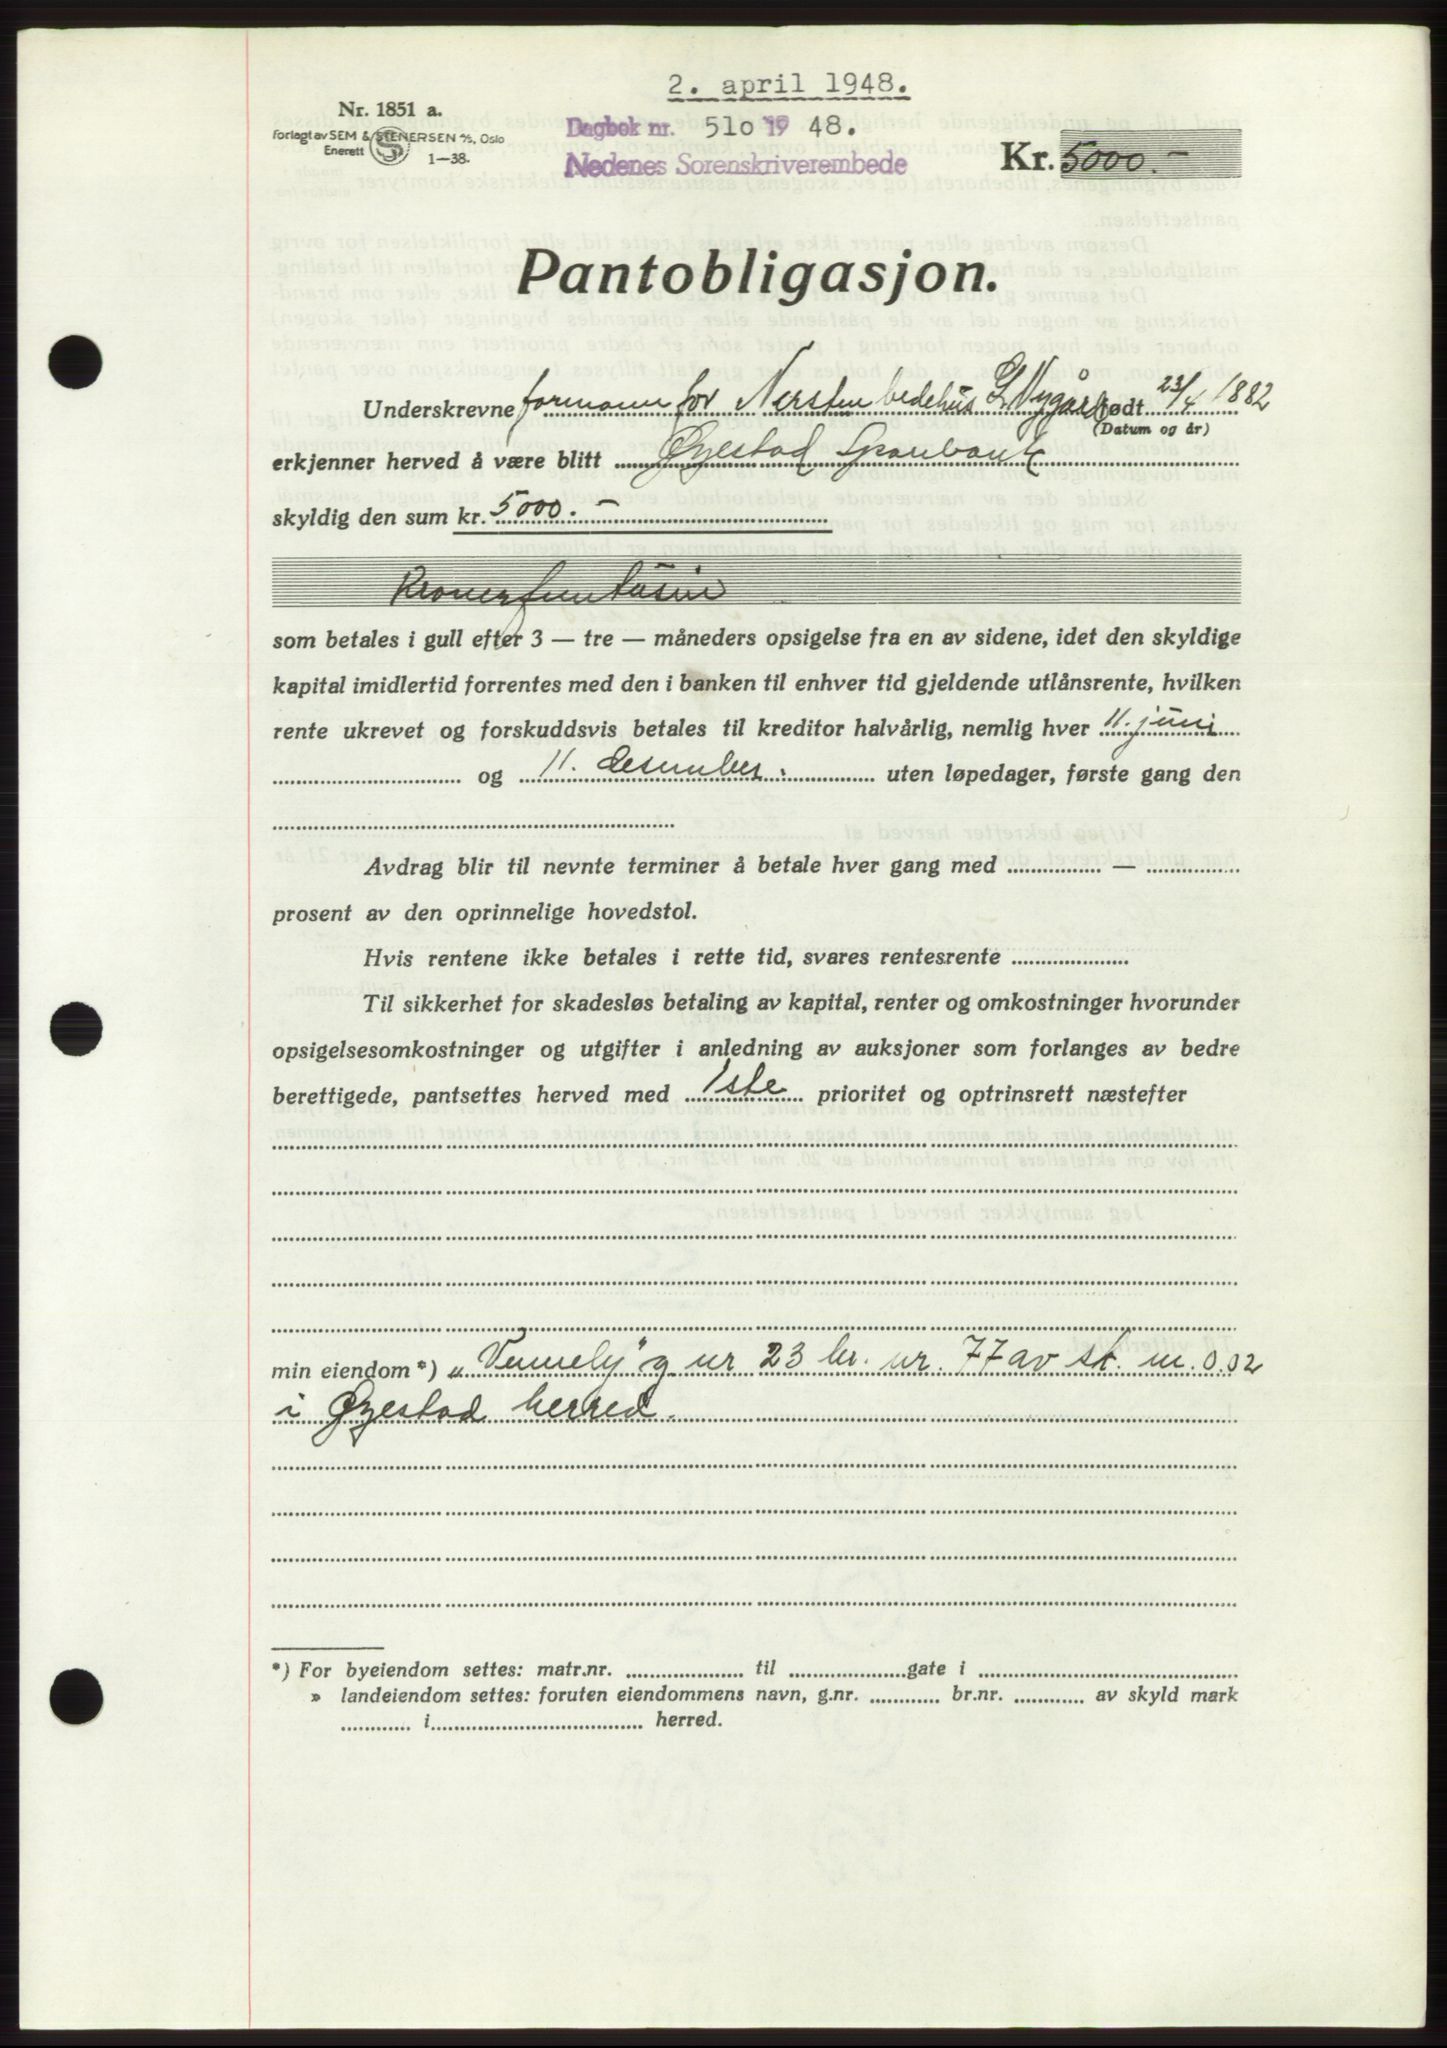 2. april 1948.
Nr. 1851 a.
Forlagt av SEM & STENERSEN A/S, Oslo
Enerett 1—38.
Dagbok nr. 510 19 48.
Nedenes Sorenskriverembede
Kr. 5000.-
Pantobligasjon.
Underskrevne formann for Nersten bedehus Nygård født 23/4 1882
(Datum og år)
erkjenner herved å være blitt Øyestad Sparebank
skyldig den sum kr. 5000.-
Kroner femtusin
som betales i gull efter 3 — tre — måneders opsigelse fra en av sidene, idet den skyldige
kapital imidlertid forrentes med den i banken til enhver tid gjeldende utlånsrente, hvilken
rente ukrevet og forskuddsvis betales til kreditor halvårlig, nemlig hver 11. juni
og 11. desember. uten løpedager, første gang den
Avdrag blir til nevnte terminer å betale hver gang med —
prosent av den oprinnelige hovedstol.
Hvis rentene ikke betales i rette tid, svares rentesrente
Til sikkerhet for skadesløs betaling av kapital, renter og omkostninger hvorunder
opsigelsesomkostninger og utgifter i anledning av auksjoner som forlanges av bedre
berettigede, pantsettes herved med 1ste prioritet og optrinsrett næstefter
min eiendom *) „Vennely" g nr 23 br. nr. 77 av sk. m. 0.02
i Øyestad herred.
*) For byeiendom settes: matr.nr. til gate i
» landeiendom settes: foruten eiendommens navn, g.nr. br.nr. av skyld mark
i herred.